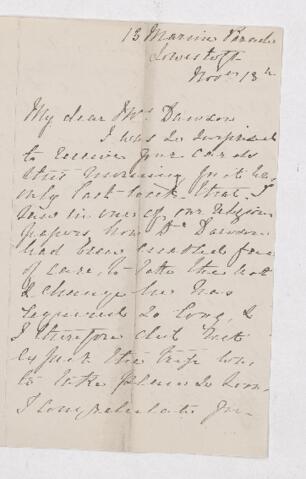 13 Marine Parade
Lowestoft
Novr 13th
My dear Mrs Dawson
I was so surprised
to receive your cards
this morning for it was
only last week that I
saw in one of our religious
papers how Dr Dawson
had been enabled free
of care, to take the rest
& change he has
required so long, &
I therefore did not
expect the trip was
to take place so soon.
I congratulate you